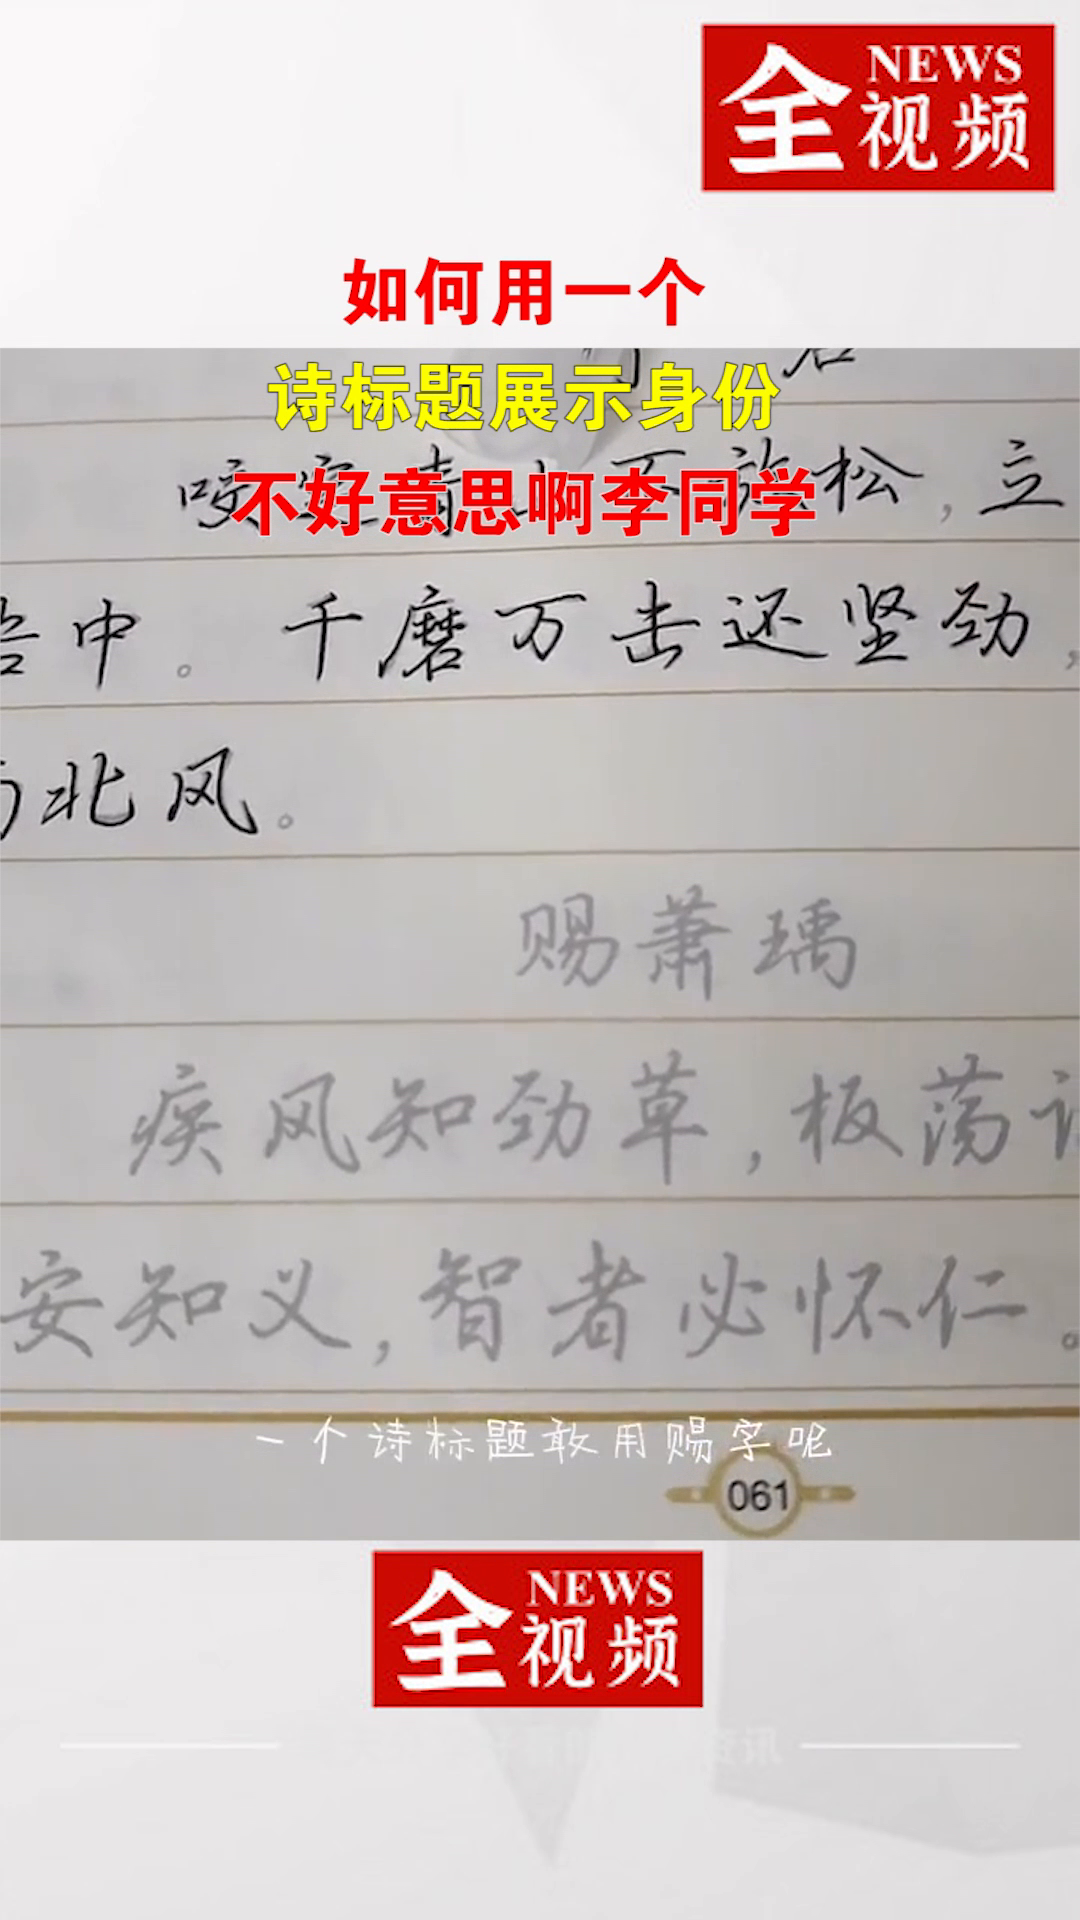 全 NEWS 视频
如何用一个
诗标题展示身份
不好意思啊李同学
咬 松，立
中。千磨万击还坚劲，
北风。
赐萧瑀
疾风知劲草，板荡
安知义，智者必怀仁。
一个诗标题敢用赐字呢
061
全 NEWS 视频